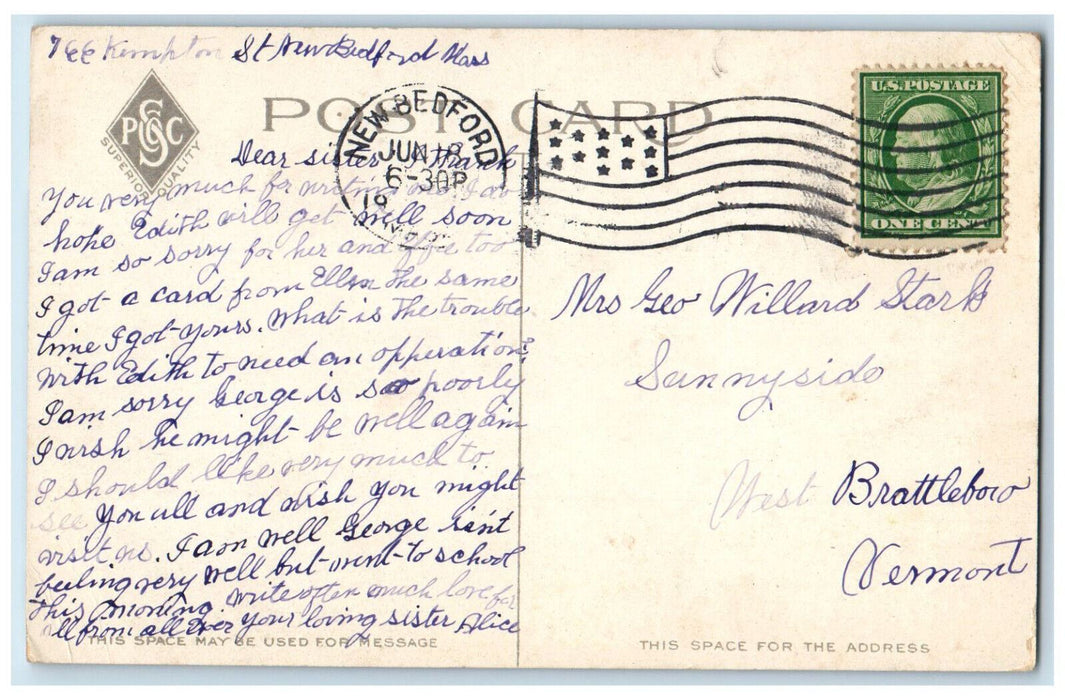 766 Kempton St New Bedford Mass
POST CARD
PSGC
SUPERIOR QUALITY
NEW BEDFORD
JUN
6-30P
19
U.S. POSTAGE
ONE CENT
Dear sister I thank
You very much for writing as I do
hope Edith will get well soon
I am so sorry for her and Effie too
I got a card from Ellen the same
time I got yours. What is the trouble
with Edith to need an opperation?
I am sorry George is so poorly
I wish he might be well again
I should like very much to
see you all and wish you might
visit us. I am well George isn't
feeling very well but went to school
this morning. write often much love for
all from all Ever your loving sister Alice
THIS SPACE MAY BE USED FOR MESSAGE
Mrs Geo Willard Stark
Sunnyside
West Brattleboro
Vermont
THIS SPACE FOR THE ADDRESS